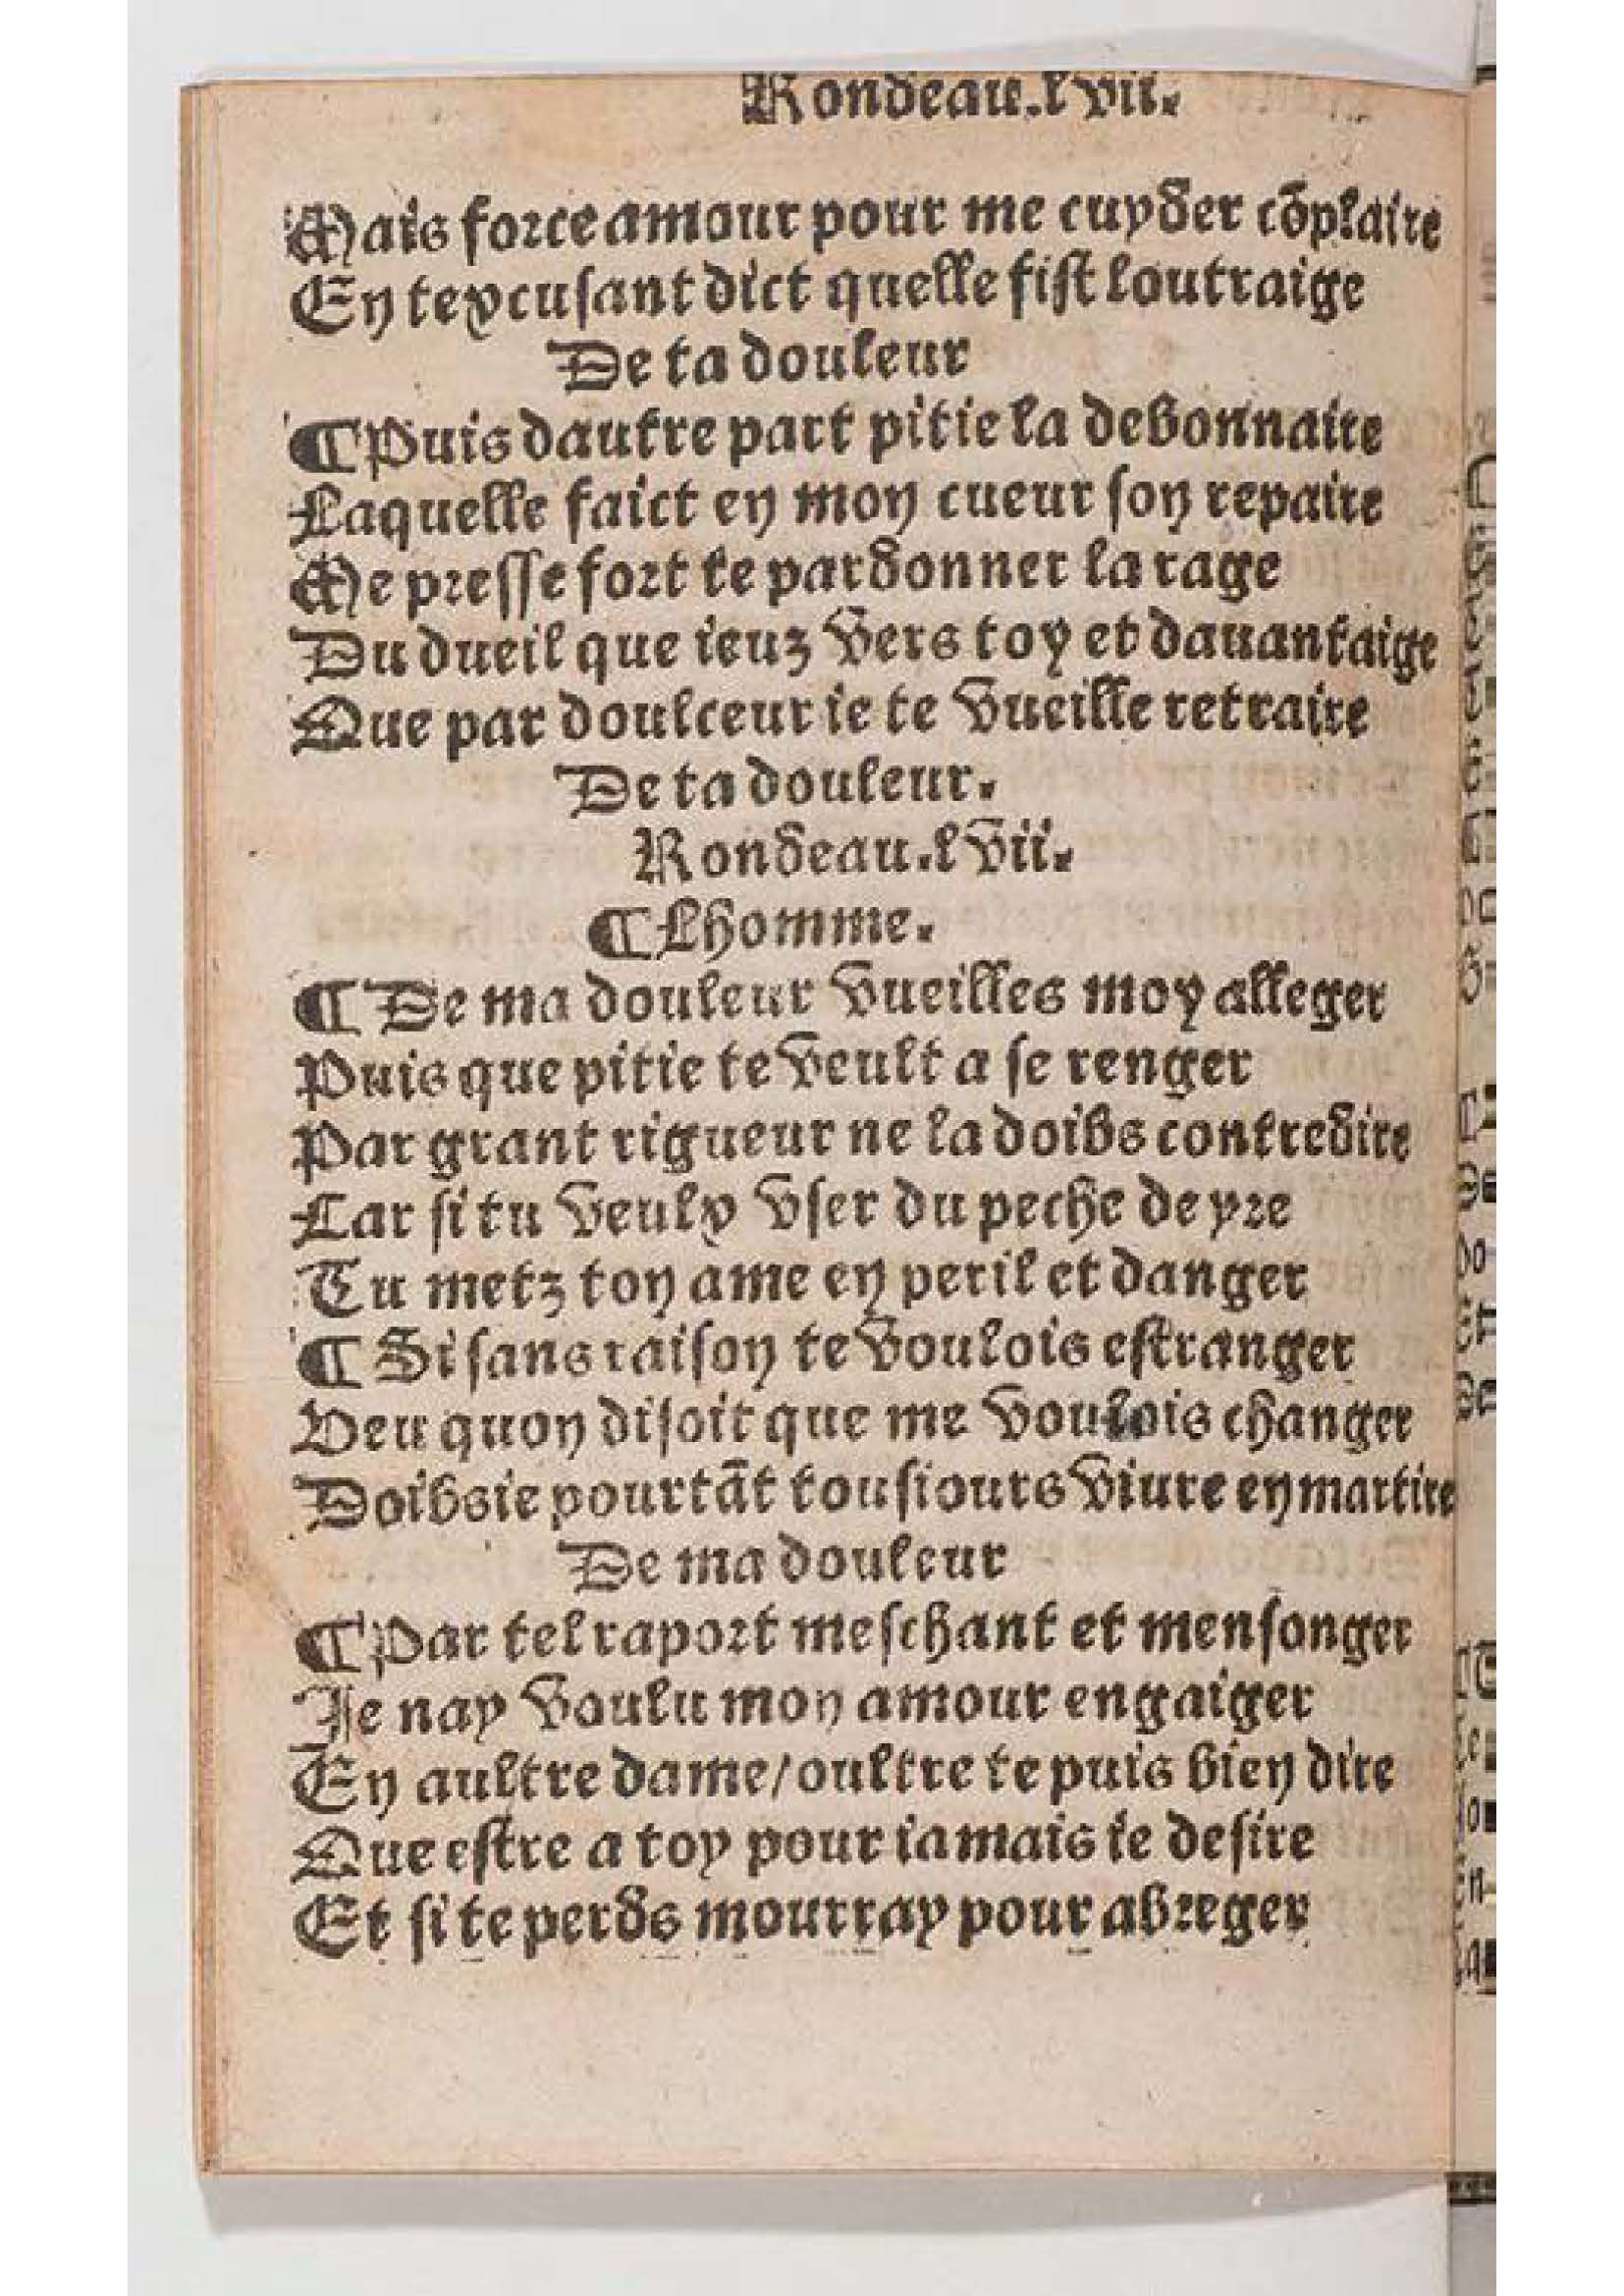 Rondeau.lvii.
Mais force amour pour me cuyder cōplaire
En texcusant dict quelle fist loutraige
De ta douleur
¶ Puis dautre part pitie la debonnaire
Laquelle faict en mon cueur son repaire
Me presse fort te pardonner la rage
Du dueil que ieuz vers toy et dauantaige
Que par doulceur ie te vueille retraire
De ta douleur.
Rondeau.lvii.
¶ Lhomme.
¶ De ma douleur vueilles moy alleger
Puis que pitie te veult a se renger
Par grant rigueur ne la doibs contredire
Car si tu veulx vser du peche de yre
Tu metz ton ame en peril et danger
¶ Si sans raison te voulois estranger
Veu quon disoit que me voulois changer
Doibs ie pourtāt tousiours viure en martire
De ma douleur
¶ Par tel raport meschant et mensonger
Je nay voulu mon amour engaiger
En aultre dame/oultre te puis bien dire
Que estre a toy pour iamais ie desire
Et si te perds mourray pour abreger